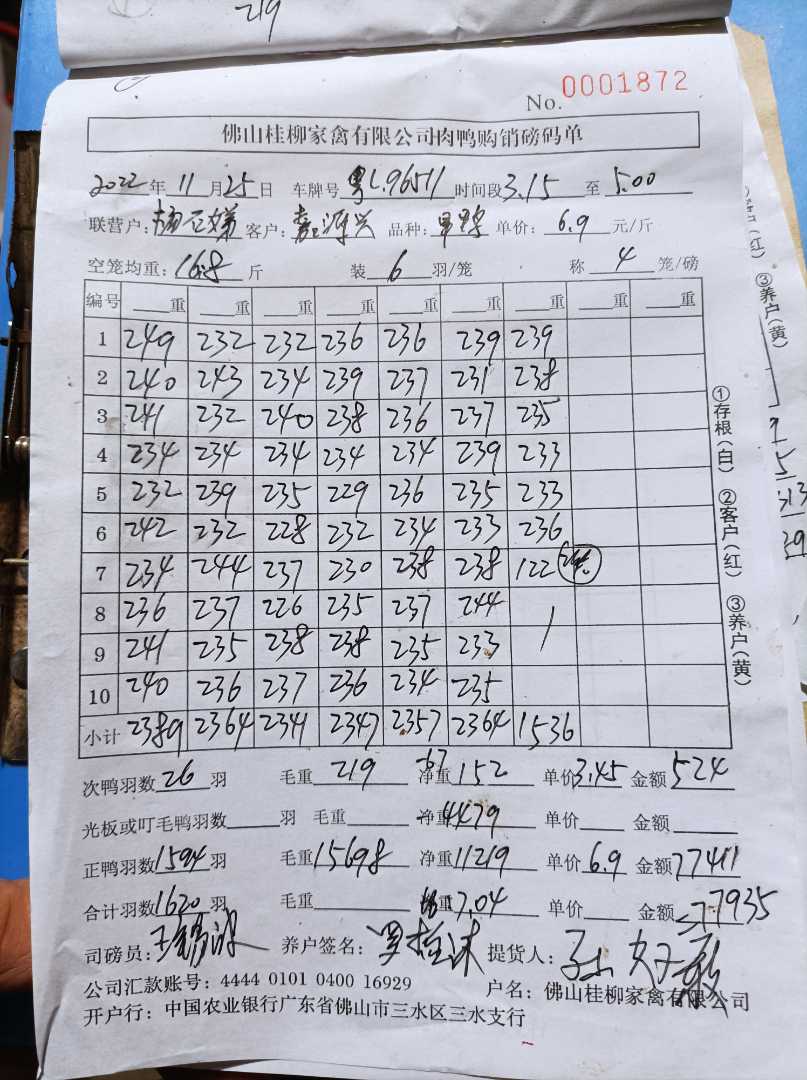 219
No. 0001872
佛山桂柳家禽有限公司肉鸭购销磅码单
2022年11月25日 车牌号粤L.96511时间段3.15至5.00
联营户: 客户:嘉源兴 品种: 单价:6.9元/斤
空笼均重:16.8斤 装6羽/笼 称4笼/磅
编号 重 重 重 重 重 重 重 重 重
1 249 232 232 236 236 239 239
2 240 243 234 239 237 231 238
3 241 232 240 238 236 237 235
4 234 234 234 234 234 239 233
5 232 239 235 229 236 235 233
6 242 232 228 232 234 233 236
7 234 244 237 230 238 238 122
8 236 237 226 235 237 244
9 241 235 238 238 235 233
10 240 236 237 236 234 235
小计 2389 2364 2341 2347 2357 2364 1536
次鸭羽数26羽 毛重219 -67 净重152 单价3.45 金额524
光板或叮毛鸭羽数 羽 毛重 净重4479 单价 金额
正鸭羽数1594羽 毛重15698 净重11219 单价6.9 金额77411
合计羽数1620羽 毛重 重7.04 单价 金额77935
司磅员: 养户签名: 提货人:
公司汇款账号:4444 0101 0400 16929 户名:佛山桂柳家禽有限公司
开户行:中国农业银行广东省佛山市三水区三水支行
①存根(白) ②客户(红) ③养户(黄)
③养户(黄)